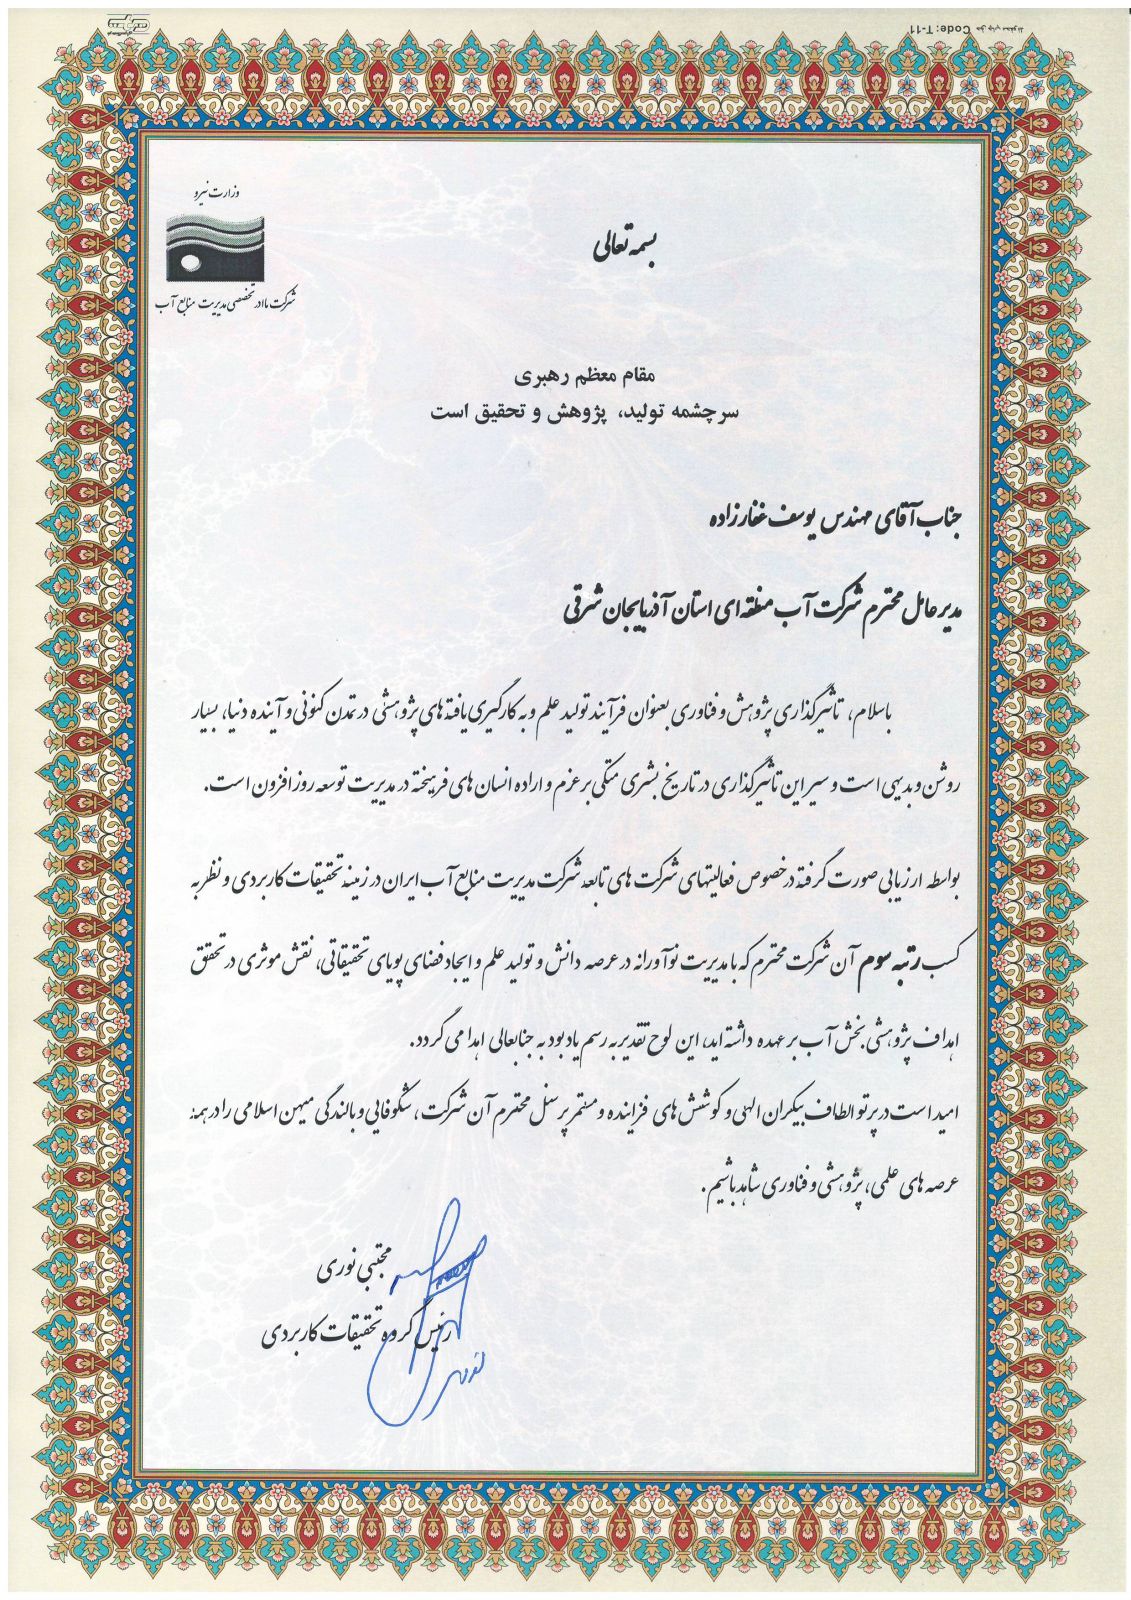 وزارت نیرو
شرکت مادر تخصصی مدیریت منابع آب
بسمه تعالی
مقام معظم رهبری
سرچشمه تولید، پژوهش و تحقیق است
جناب آقای مهندس یوسف غفارزاده
مدیرعامل محترم شرکت آب منطقه ای استان آذربایجان شرقی
باسلام، تاثیرگذاری پژوهش و فناوری بعنوان فرآیند تولید علم و به کارگیری یافته های پژوهشی در تمدن کنونی و آینده دنیا، بسیار
روشن و بدیهی است و سیر این تاثیرگذاری در تاریخ بشری متکی بر عزم و اراده انسان های فرهیخته در مدیریت توسعه روز افزون است.
بواسطه ارزیابی صورت گرفته در خصوص فعالیتهای شرکت های تابعه شرکت مدیریت منابع آب ایران در زمینه تحقیقات کاربردی و نظر به
کسب رتبه سوم آن شرکت محترم که با مدیریت نوآورانه در عرصه دانش و تولید علم و ایجاد فضای پویای تحقیقاتی، نقش موثری در تحقق
اهداف پژوهشی بخش آب بر عهده داشته اید، این لوح تقدیر به رسم یادبود به جنابعالی اهدا می گردد.
امید است در پرتو الطاف بیکران الهی و کوشش های فزاینده و مستمر پرسنل محترم آن شرکت، شکوفایی و بالندگی میهن اسلامی را در همه
عرصه های علمی، پژوهشی و فناوری شاهد باشیم.
مجتبی نوری
رئیس گروه تحقیقات کاربردی
Code: T-11